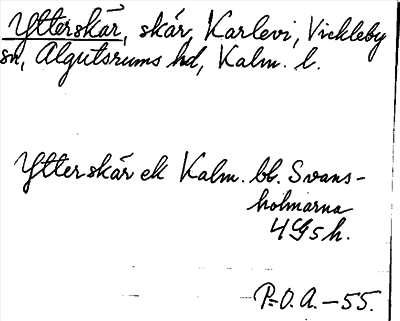 Ytterskär, skär, Karlevi, Vickleby
sn, Algutsrums hd, Kalm. l.
Ytterskär ek Kalm. bl. Svans-
holmarna
4G5h.
P.O.A. – 55.